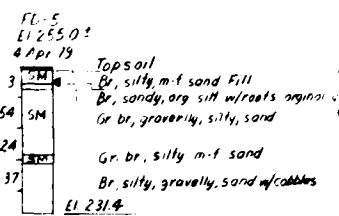 FD-5
El 255.0±
4 Apr 79
Topsoil
SM
3
Br, silty, m-f sand Fill
Br, sandy, org silt w/roots
54
SM
Gr br, gravelly, silty, sand
24
SM
Gr. br, silty m-f sand
37
Br, silty, gravelly, sand w/cobbles
El 231.4